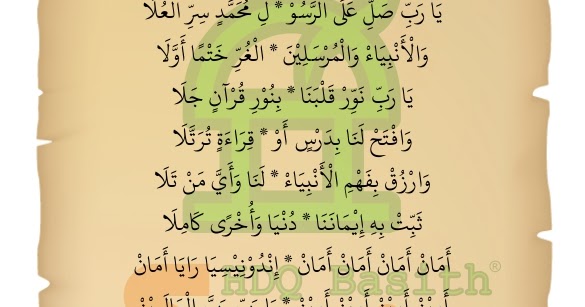 يَا رَبِّ صَلِّ عَلَى الرَّسُوْ * لِ مُحَمَّدٍ سِرِّ الْعُلَا
وَالْأَنْبِيَاءْ وَالْمُرْسَلِيْنَ * الْغُرِّ خَتْمًا أَوَّلَا
يَا رَبِّ نَوِّرْ قَلْبَنَا * بِنُوْرِ قُرْآنٍ جَلَا
وَافْتَحْ لَنَا بِدَرْسٍ أَوْ * قِرَاءَةٍ تُرَتَّلَا
وَارْزُقْ بِفَهْمِ الْأَنْبِيَاءْ * لَنَا وَأَيَّ مَنْ تَلَا
ثَبِّتْ بِهِ إِيْمَانَنَا * دُنْيَا وَأُخْرًى كَامِلَا
أَمَانْ أَمَانْ أَمَانْ أَمَانْ * إِنْدُوْنِيْسِيَا رَايَا أَمَانْ
HDQ Basith®